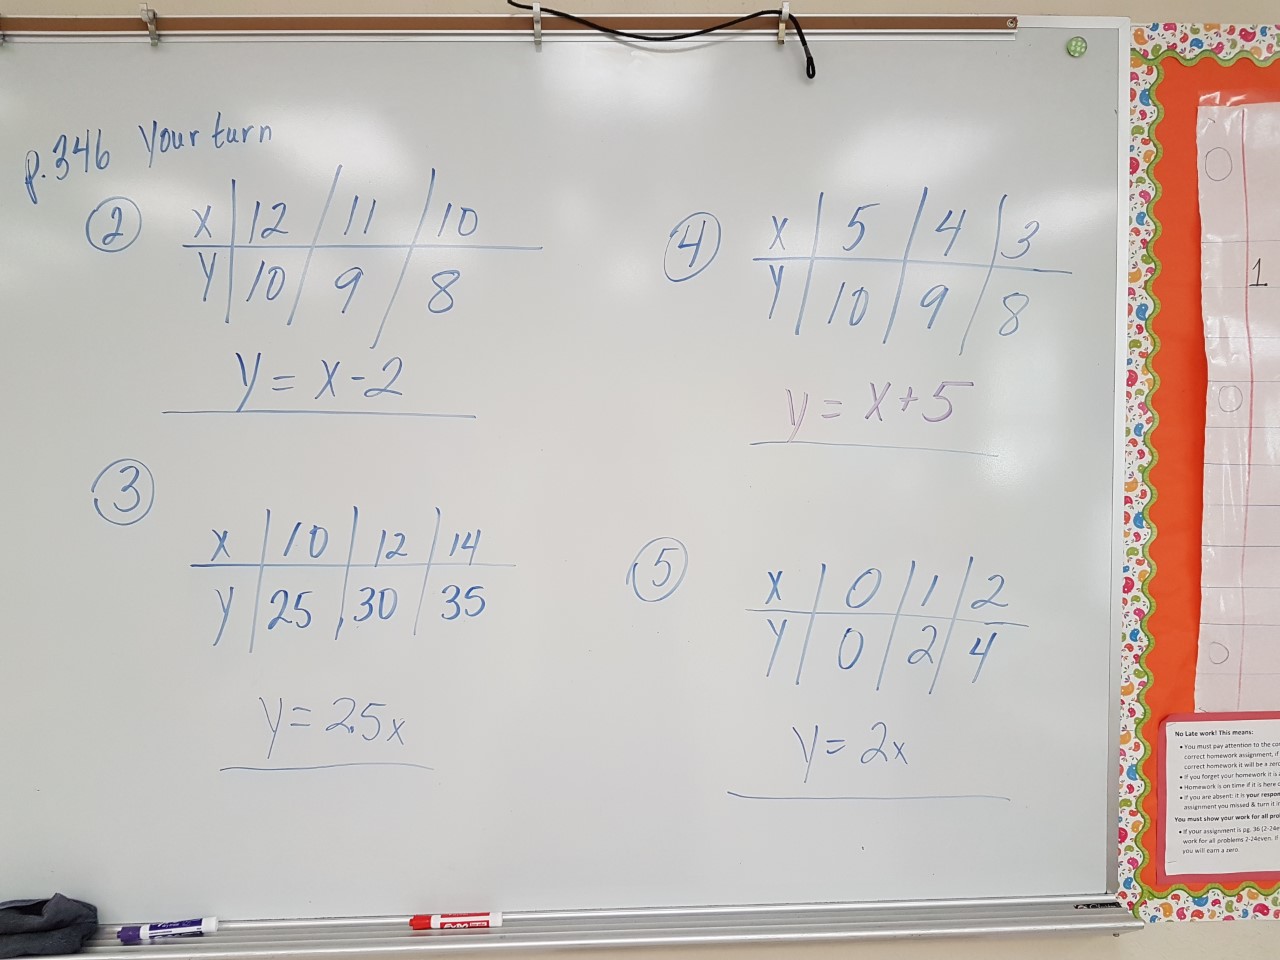 p.346 Your turn
② X 12 11 10
Y 10 9 8
y = x - 2
③
X 10 12 14
y 25 30 35
y = 2.5x
④ X 5 4 3
Y 10 9 8
y = x + 5
⑤ X 0 1 2
Y 0 2 4
y = 2x
1.
No Late work! This means:
• You must pay attention to the
correct homework assignment, if
correct homework it will be a zero
• If you forget your homework it is
• Homework is on time if it is here
• If you are absent: it is your
assignment you missed & turn it
You must show your work for all
• If your assignment is pg. 36 (2-24
work for all problems 2-24even. If
you will earn a zero.
EXPO